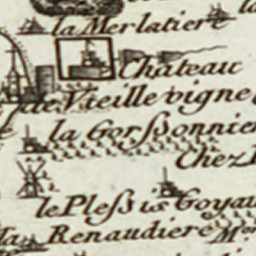 la Merlatiere
Château
de Vieille vigne
la Gorssonnier
Chez
le Plessis Goyau
Renaudiere